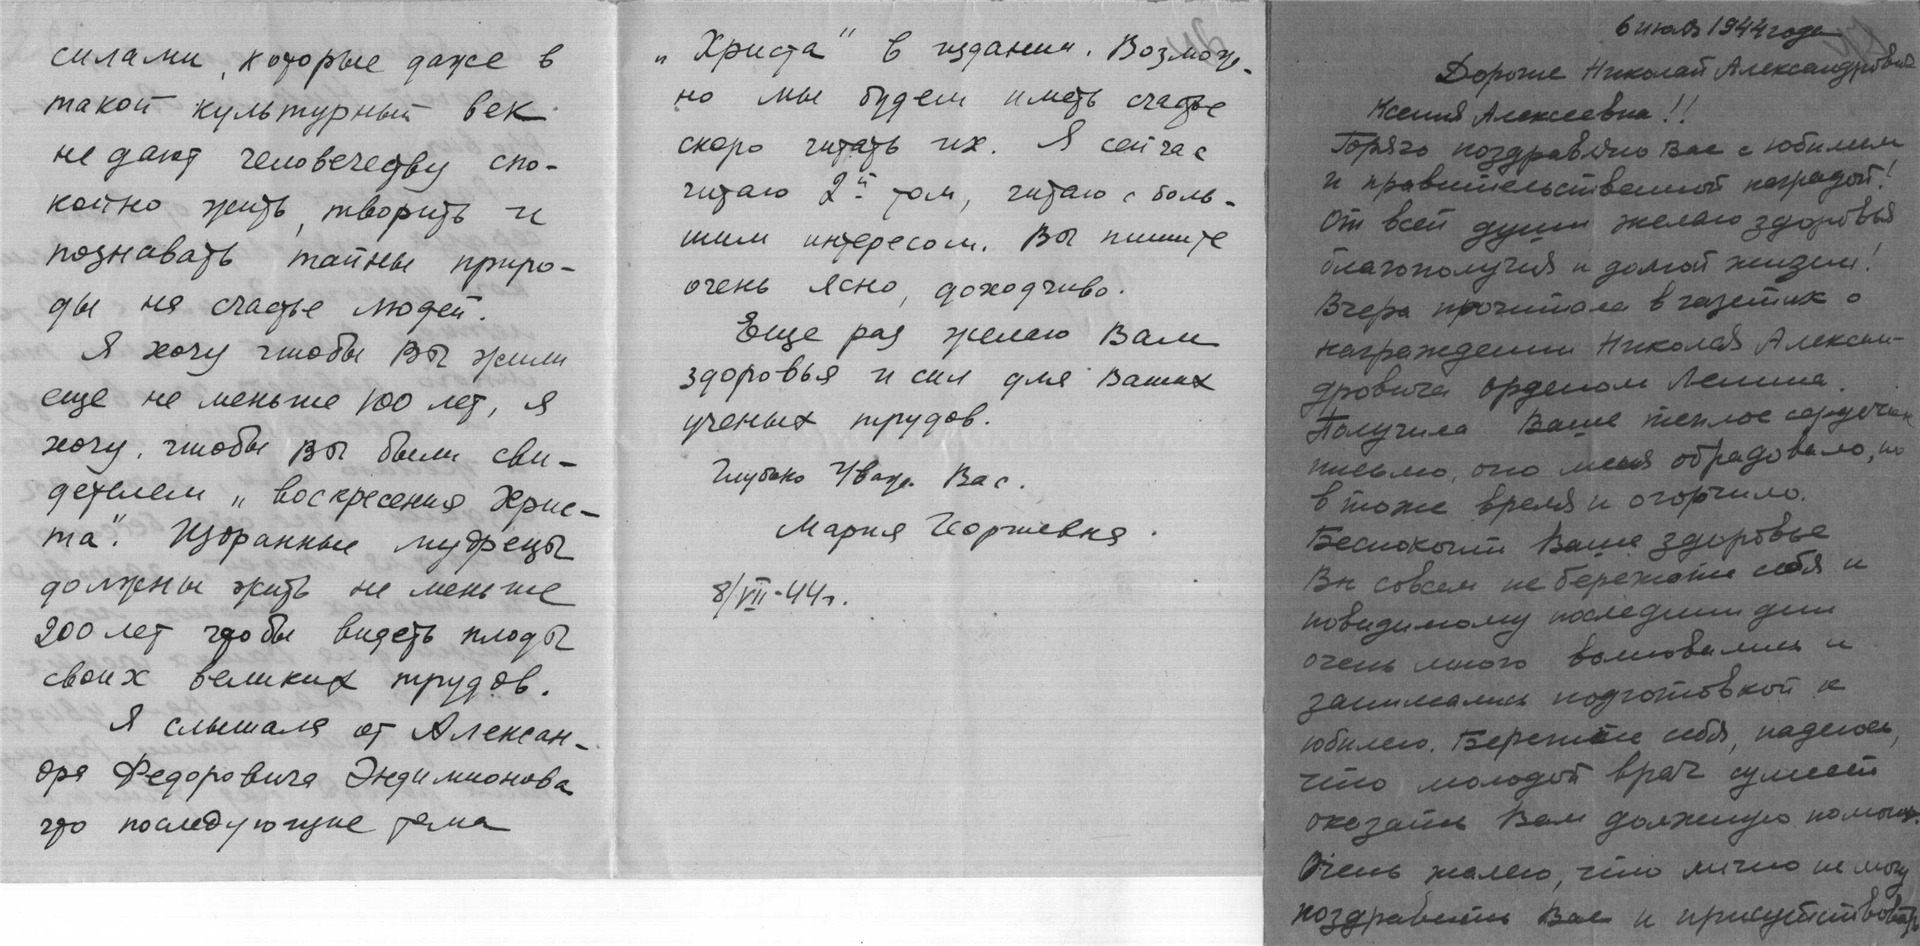 силами, которые даже в
такой культурный век
не дают человечеству спо-
койно жить, творить и
познавать тайны приро-
ды на счастье людей.
Я хочу чтобы Вы жили
еще не меньше 100 лет, я
хочу, чтобы Вы были сви-
детелем „воскресения Хрис-
та". Избранные мудрецы
должны жить не меньше
200 лет чтобы видеть плоды
своих великих трудов.
Я слышала от Алексан-
дра Федоровича Эндимионова
что последующие тома
„Христа" в издании. Возмож-
но мы будем иметь счастье
скоро читать их. Я сейчас
читаю 2й том, читаю с боль-
шим интересом. Вы пишите
очень ясно, доходчиво.
Еще раз желаю Вам
здоровья и сил для Ваших
ученых трудов.
Глубоко Уваж. Вас.
Мария Георгиевна.
8/VII-44г.
6 июля 1944 года
Дорогие Николай Александрович
Ксения Алексеевна!!
Горячо поздравляю Вас с юбилеем
и правительственной наградой!
От всей души желаю здоровья
благополучия и долгой жизни!
Вчера прочитала в газетах о
награждении Николая Алексан-
дровича орденом Ленина.
Получила Ваше теплое сердечное
письмо, оно меня обрадовало, но
в тоже время и огорчило.
Беспокоит Ваше здоровье
Вы совсем не бережете себя и
повидимому последние дни
очень много волновались и
занимались подготовкой к
юбилею. Берегите себя, надеюсь,
что молодой врач сумеет
оказать Вам должную помощь.
Очень жалею, что лично не могу
поздравить Вас и присутствовать